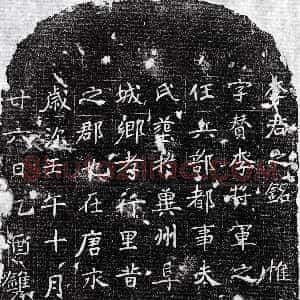 李君銘惟
字賛李將軍之
任兵部都事夫
氏巢州阜
城鄉孝行里昔
之郡在唐水
歲次壬午十月
廿六日乙酉雙